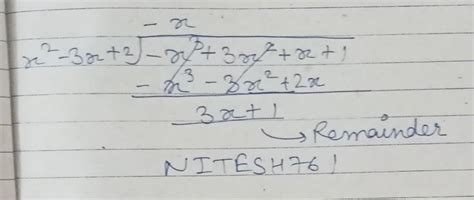 - x
x² - 3x + 2) - x³ + 3x² + x + 1
- x³ - 3x² + 2x
3x + 1
Remainder
NITESH761